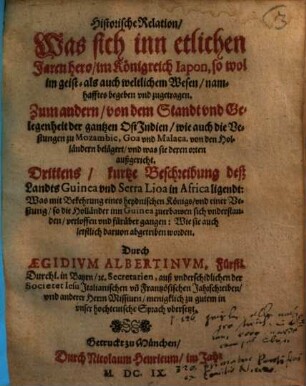 Historische Relation/
Was sich inn etlichen
Jaren hero/ im Königreich Iapon, so wol
im geist- als auch weltlichem Wesen/ nam-
hafftes begeben vnd zugetragen.
Zum andern/ von dem Standt vnd Ge-
legenheit der gantzen Ost Indien/ wie auch die Ve-
stungen zu Mozambic, Goa vnd Malaca, von den Hol-
ländern belägert/ vnd was sie deren orten
außgericht.
Drittens/ kurtze Beschreibung deß
Landes Guinea vnd Serra Lioa in Africa ligendt:
Was mit Bekehrung eines heydnischen Königs/ vnd einer Ve-
stung/ so die Holländer inn Guinea zuerbawen sich vnderstan-
den/ verloffen vnd fürüber gangen: Wie sie auch
letstlich daruon abgetriben worden.
Durch
ÆGIDIVM ALBERTINVM, Fürstl.
Durchl. in Bayrn/ ꝛc. Secretarien, auß vnderschidlichen der
Societet Iesu Italianischen vñ Frantzösischen Jahrschreiben/
vnd anderer Herrn Missiuen/ meniglich zu gutem in
vnser hochteutsche Sprach vbersetzt.
Getruckt zu München/
Durch Nicolaum Henricum/ im Jahr
M. DC. IX.